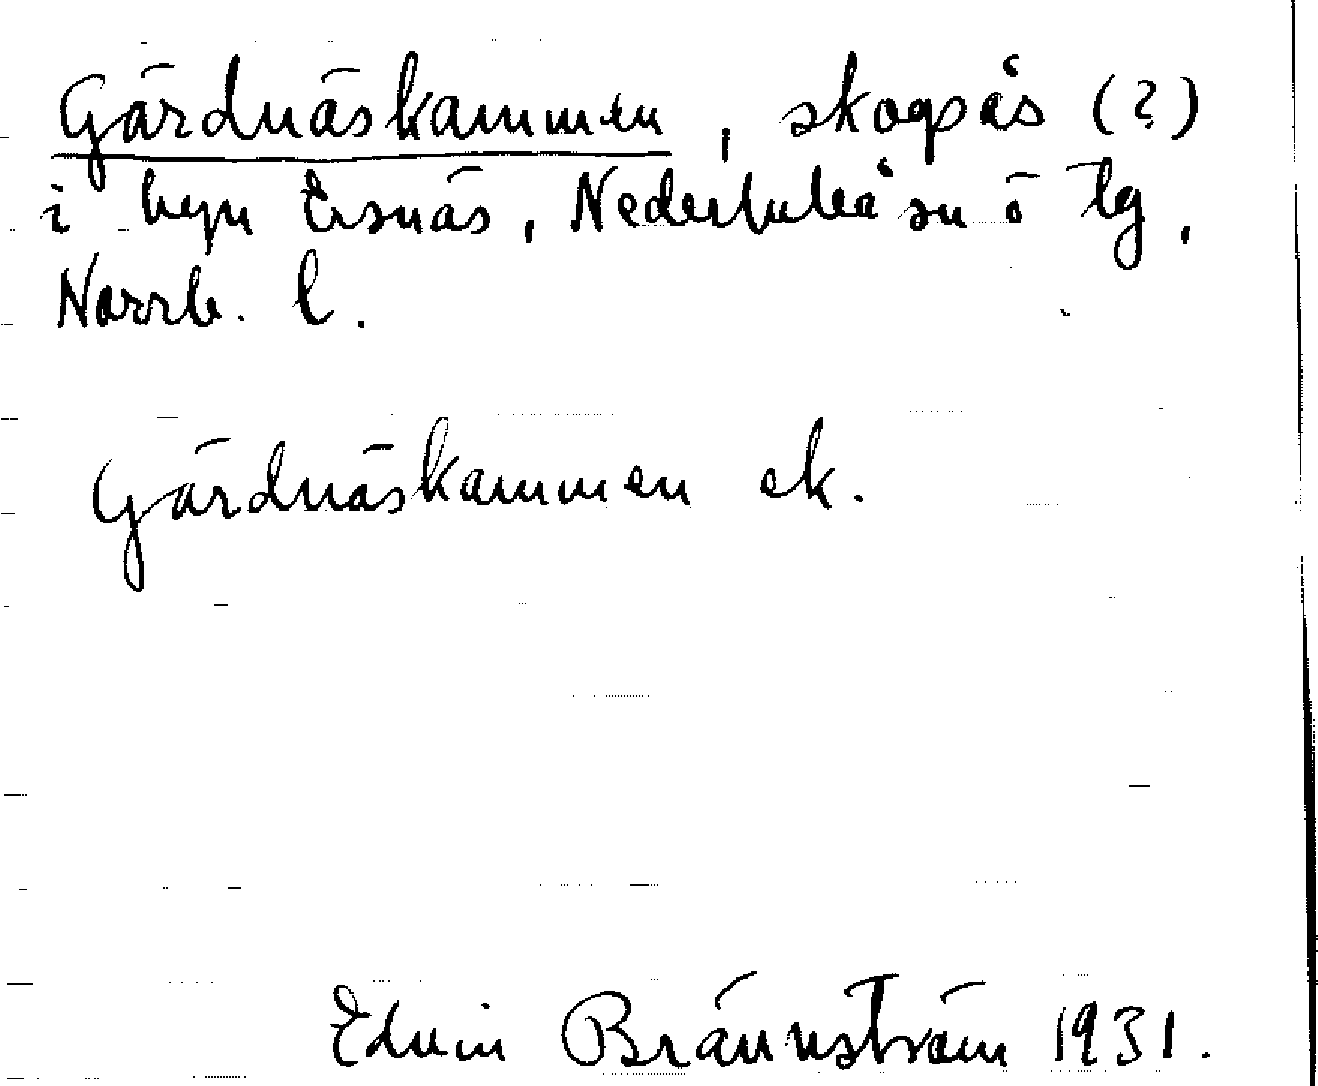 Gärdnäskammen, skogsås (?)
i byn Ersnäs, Nederluleå sn ö tg,
Norrb. l.
Gärdnäskammen ek.
Edvin Brännström 1931.